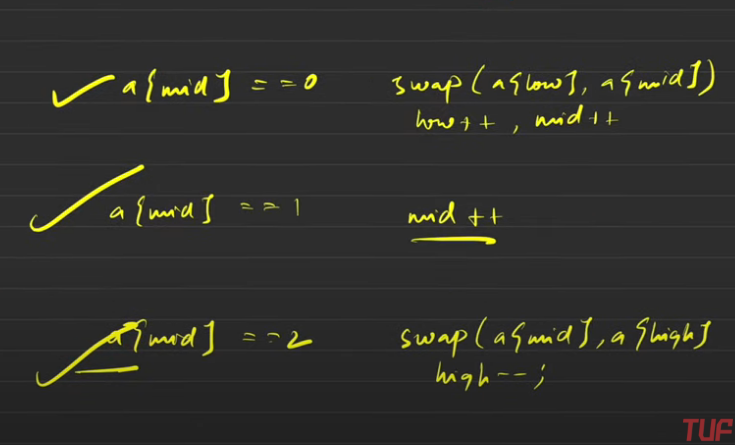 a[mid] == 0 swap(a[low], a[mid])
low++, mid++
a[mid] == 1 mid++
a[mid] == 2 swap(a[mid], a[high]
high--;
TUF